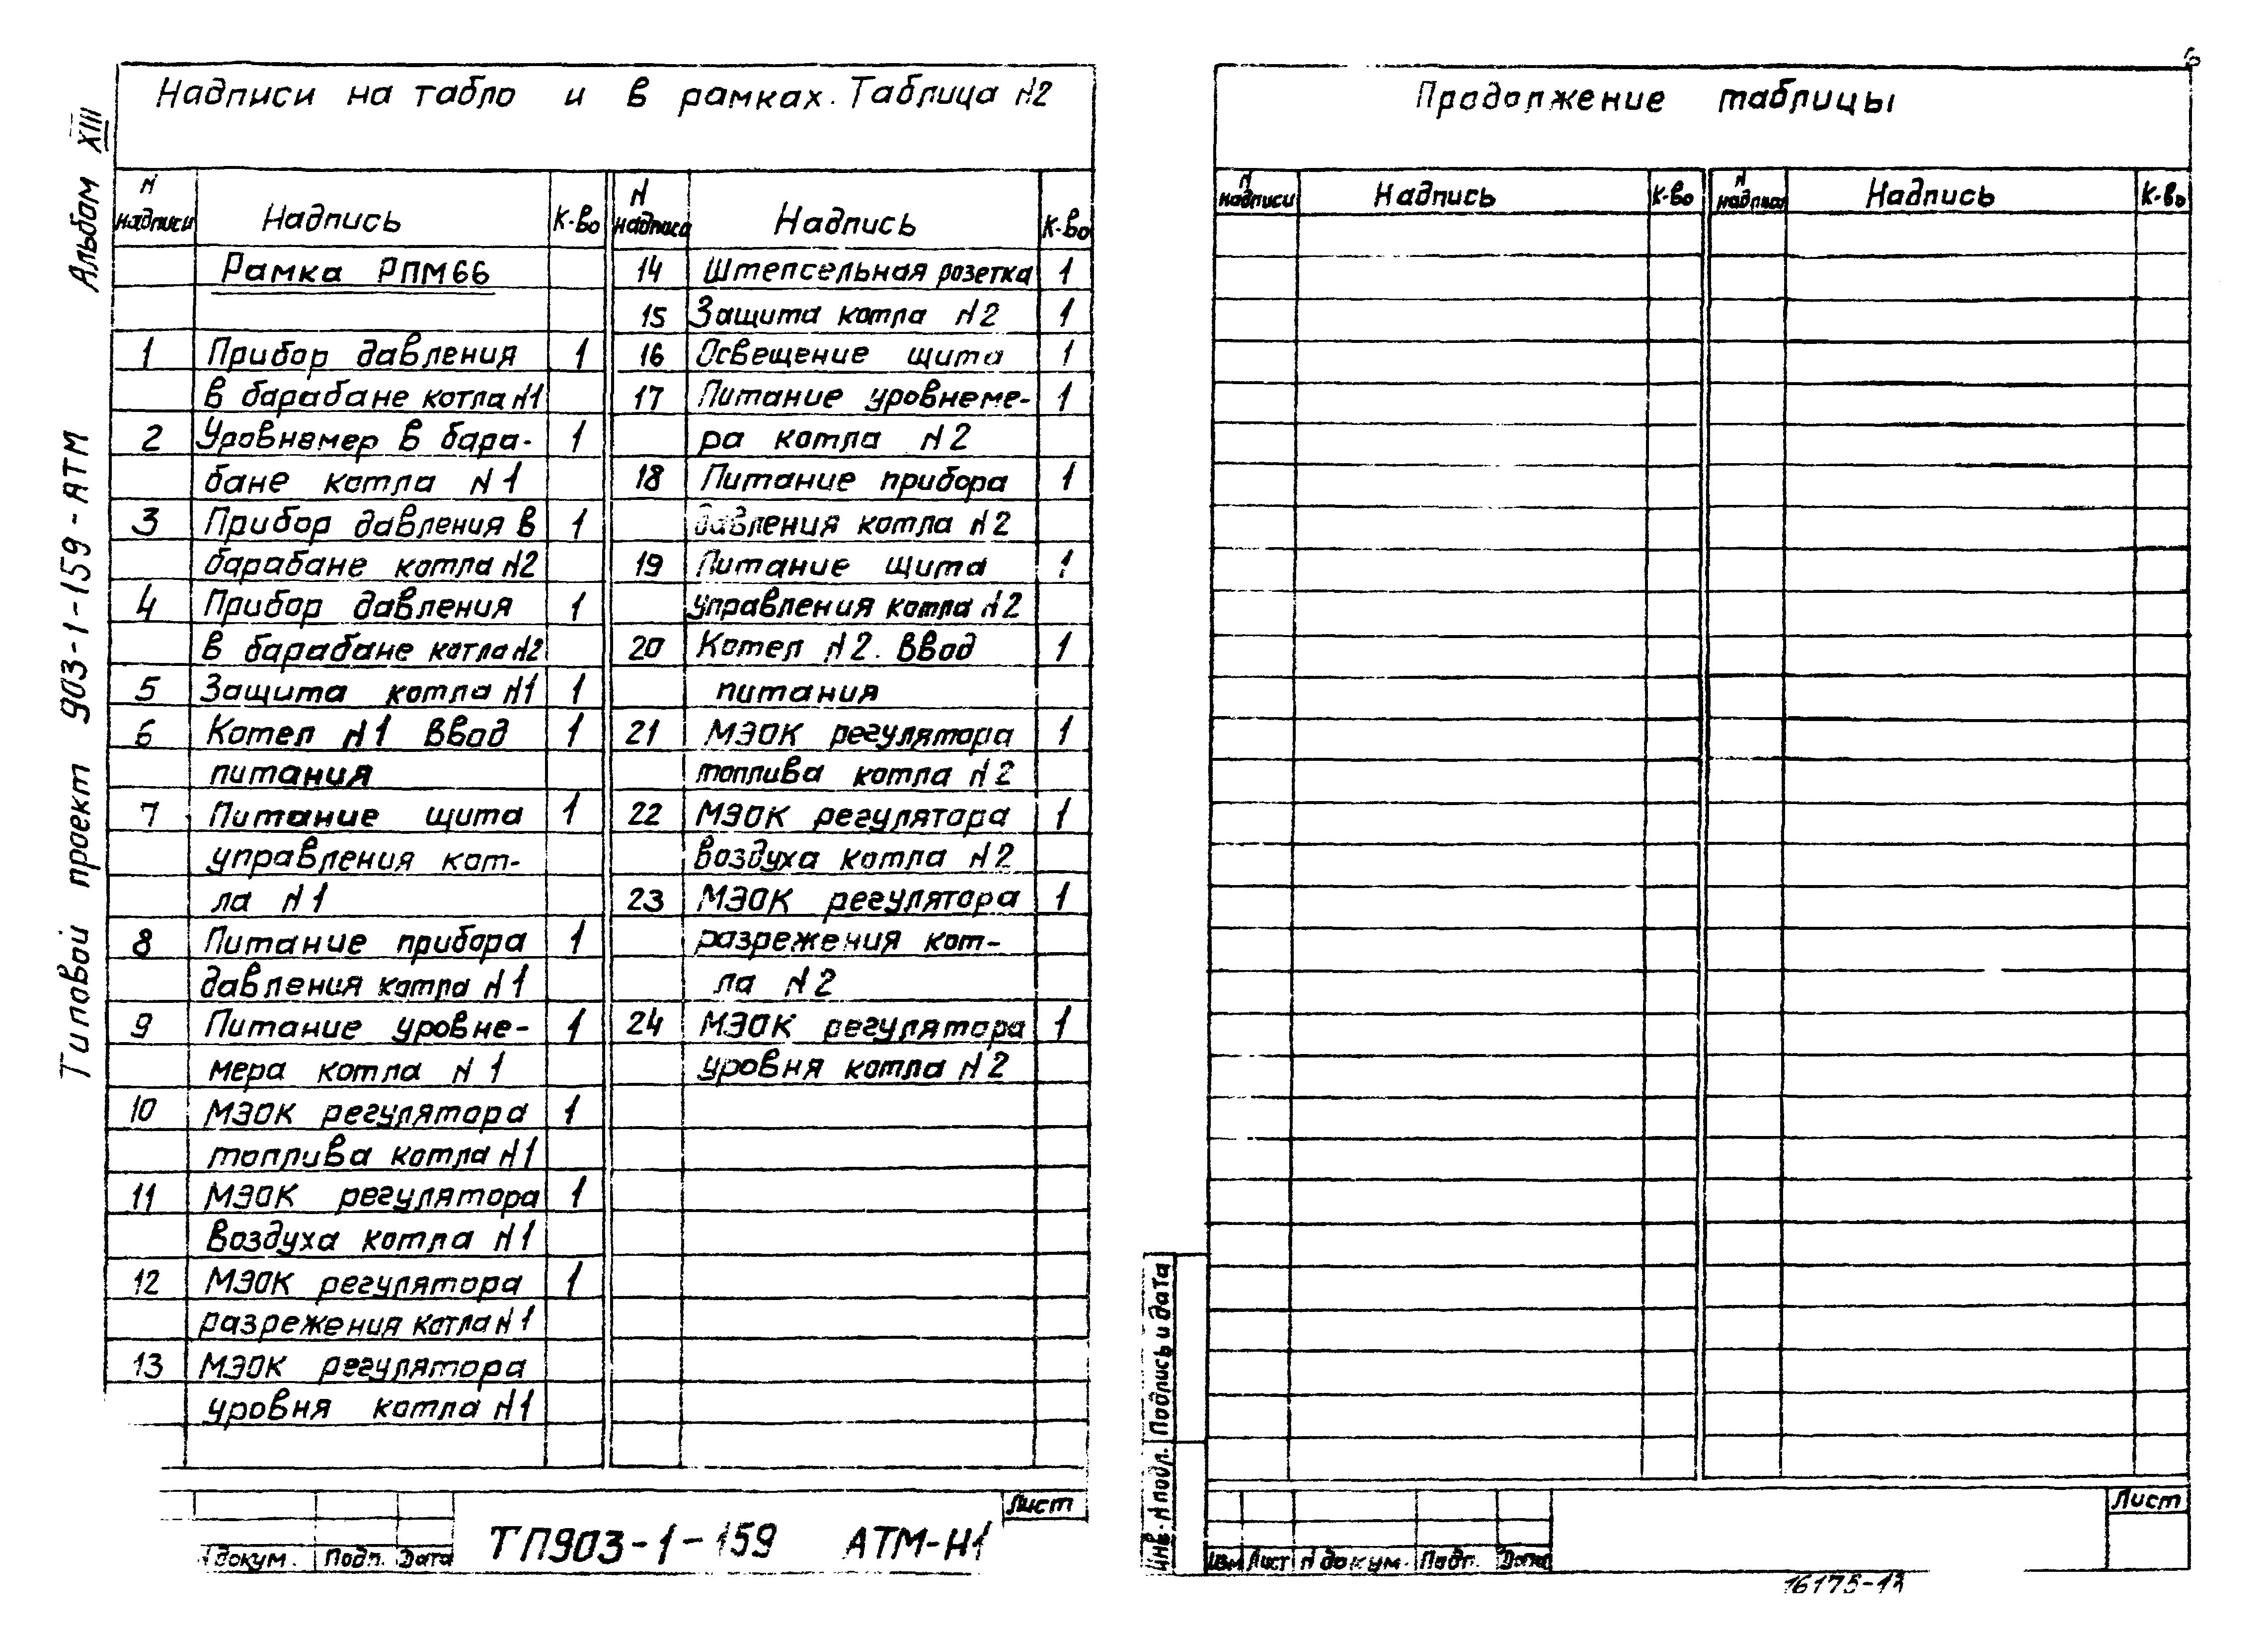 Альбом XIII
Типовой проект 903-1-159-АТМ
Надписи на табло и в рамках. Таблица N2
N надписи Надпись К-во N надписи Надпись К-во
Рамка РПМ66
1 Прибор давления 1
в барабане котла N1
2 Уровнемер в бара- 1
бане котла N1
3 Прибор давления в 1
барабане котла N2
4 Прибор давления 1
в барабане котла N2
5 Защита котла N1 1
6 Котел N1 Ввод 1
питания
7 Питание щита 1
управления кот-
ла N1
8 Питание прибора 1
давления котла N1
9 Питание уровне- 1
мера котла N1
10 МЭОК регулятора 1
топлива котла N1
11 МЭОК регулятора 1
воздуха котла N1
12 МЭОК регулятора 1
разрежения котла N1
13 МЭОК регулятора
уровня котла N1
14 Штепсельная розетка 1
15 Защита котла N2 1
16 Освещение щита 1
17 Питание уровнеме- 1
ра котла N2
18 Питание прибора 1
давления котла N2
19 Питание щита 1
управления котла N2
20 Котел N2. Ввод 1
питания
21 МЭОК регулятора 1
топлива котла N2
22 МЭОК регулятора 1
воздуха котла N2
23 МЭОК регулятора 1
разрежения кот-
ла N2
24 МЭОК регулятора 1
уровня котла N2
N докум. Подп. Дата
ТП903-1-159 АТМ-Н1
Лист
6
Продолжение таблицы
N надписи Надпись К-во N надписи Надпись К-во
Инв. N подл. Подпись и дата
Изм Лист N докум. Подп. Дата
Лист
16175-13